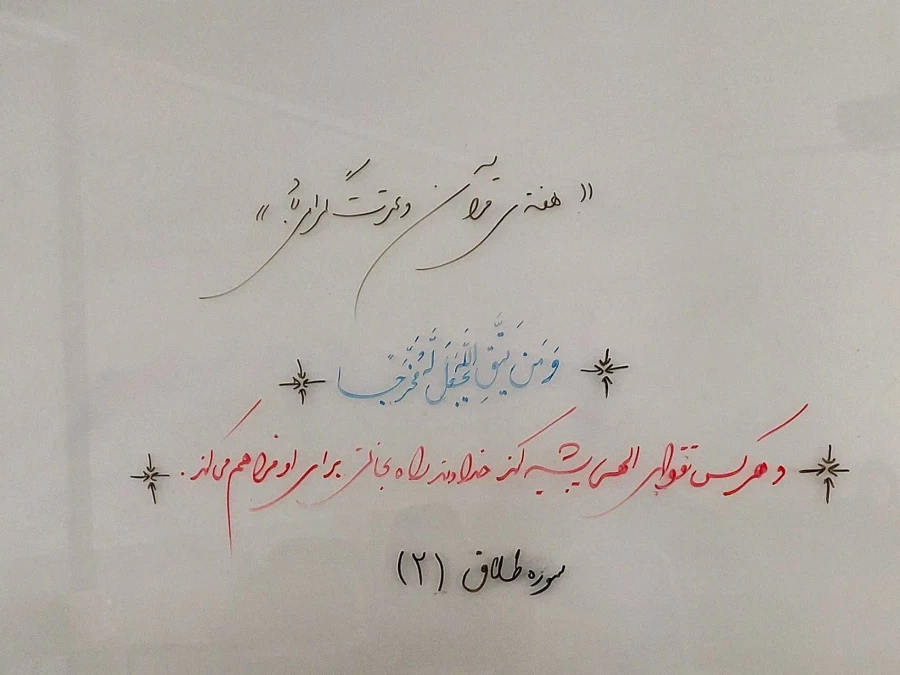 « هفته‌ی قرآن و عترت گرامی باد »
وَمَن يَتَّقِ اللَّهَ يَجْعَل لَّهُ مَخْرَجًا
و هر کس تقوای الهی پیشه کند خداوند راه نجاتی برای او فراهم می‌کند.
سوره طلاق (۲)